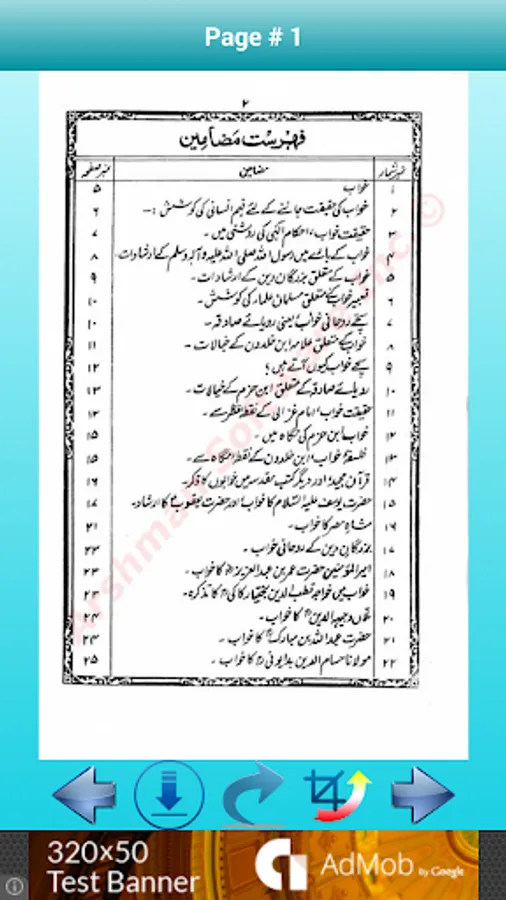 Page # 1
۲
فہرست مضامین
نمبر شمار مضامین نمبر صفحہ
۱ خواب ۵
۲ خواب کی حقیقت جاننے کے لئے فہم انسانی کی کوشش :- ۶
۳ حقیقت خواب، احکام الٰہی کی روشنی میں - ۷
۴ خواب کے بارے میں رسول اللہ صلی اللہ علیہ وآلہ وسلم کے ارشادات - ۸
۵ خواب کے متعلق بزرگان دین کے ارشادات - ۹
۶ تعبیر خواب کے متعلق مسلمان علماء کی کوشش - ۱۰
۷ سچے روحانی خواب یعنی رویائے صادقہ - ۱۰
۸ خواب کے متعلق علامہ ابن خلدون کے خیالات - ۱۱
۹ سچے خواب کیوں آتے ہیں؟ ۱۲
۱۰ رویائے صادقہ کے متعلق ابن حزم کے خیالات - ۱۳
۱۱ حقیقت خواب، امام غزالی کے نقطہ نظر سے - ۱۳
۱۲ خواب ابن حزم کی نگاہ میں - ۱۵
۱۳ فلسفہ خواب، ابن خلدون کے نقطہ نگاہ سے - ۱۵
۱۴ قرآن مجید اور دیگر کتب مقدسہ میں خوابوں کا ذکر - ۱۶
۱۵ حضرت یوسف علیہ السلام کا خواب اور حضرت یعقوب کا ارشاد - ۱۷
۱۶ شاہ مصر کا خواب - ۲۱
۱۷ بزرگان دین کے روحانی خواب - ۲۳
۱۸ امیر المؤمنین حضرت عمر بن عبدالعزیز کا خواب - ۲۳
۱۹ خواب میں خواجہ قطب الدین بختیار کاکی کا تذکرہ - ۲۳
۲۰ وجیہہ الدین کا خواب - ۲۴
۲۱ حضرت عبداللہ بن مبارک کا خواب - ۲۴
۲۲ مولانا حسام الدین بدایونی کا خواب - ۲۵
320×50
Test Banner
AdMob by Google